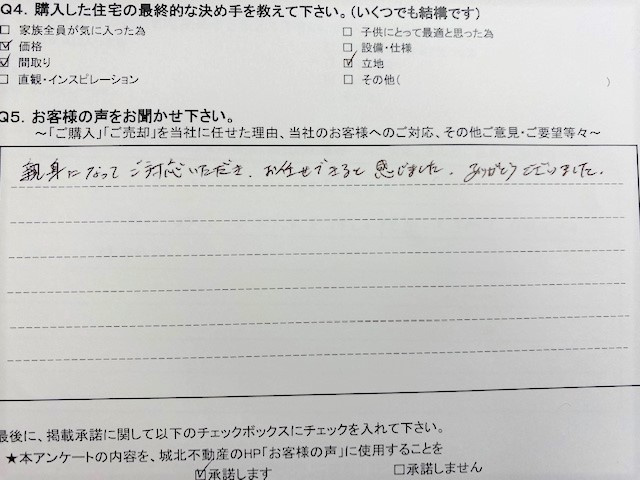 Q4. 購入した住宅の最終的な決め手を教えて下さい。(いくつでも結構です)
□ 家族全員が気に入った為 □ 子供にとって最適と思った為
☑ 価格 □ 設備・仕様
☑ 間取り ☑ 立地
□ 直観・インスピレーション □ その他( )
Q5. お客様の声をお聞かせ下さい。
～「ご購入」「ご売却」を当社に任せた理由、当社のお客様へのご対応、その他ご意見・ご要望等々～
親身になってご対応いただき、お任せできると感じました。ありがとうございました。
最後に、掲載承諾に関して以下のチェックボックスにチェックを入れて下さい。
★本アンケートの内容を、城北不動産のHP「お客様の声」に使用することを
☑承諾します □承諾しません